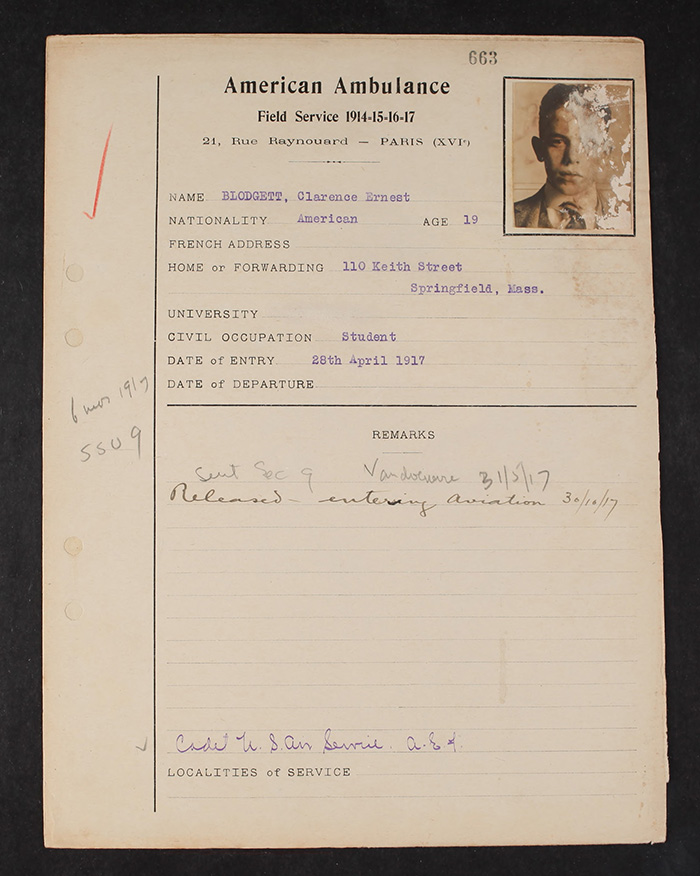 663
American Ambulance
Field Service 1914-15-16-17
21, Rue Raynouard — PARIS (XVIe)
NAME BLODGETT, Clarence Ernest
NATIONALITY American AGE 19
FRENCH ADDRESS
HOME or FORWARDING 110 Keith Street
Springfield, Mass.
UNIVERSITY
CIVIL OCCUPATION Student
DATE of ENTRY 28th April 1917
DATE of DEPARTURE
6 mos 1917
SSU 9
REMARKS
Sent Sec 9 31/5/17
Released - entering Aviation 30/10/17
Cadet U. S. Air Service. A.E.F.
LOCALITIES of SERVICE